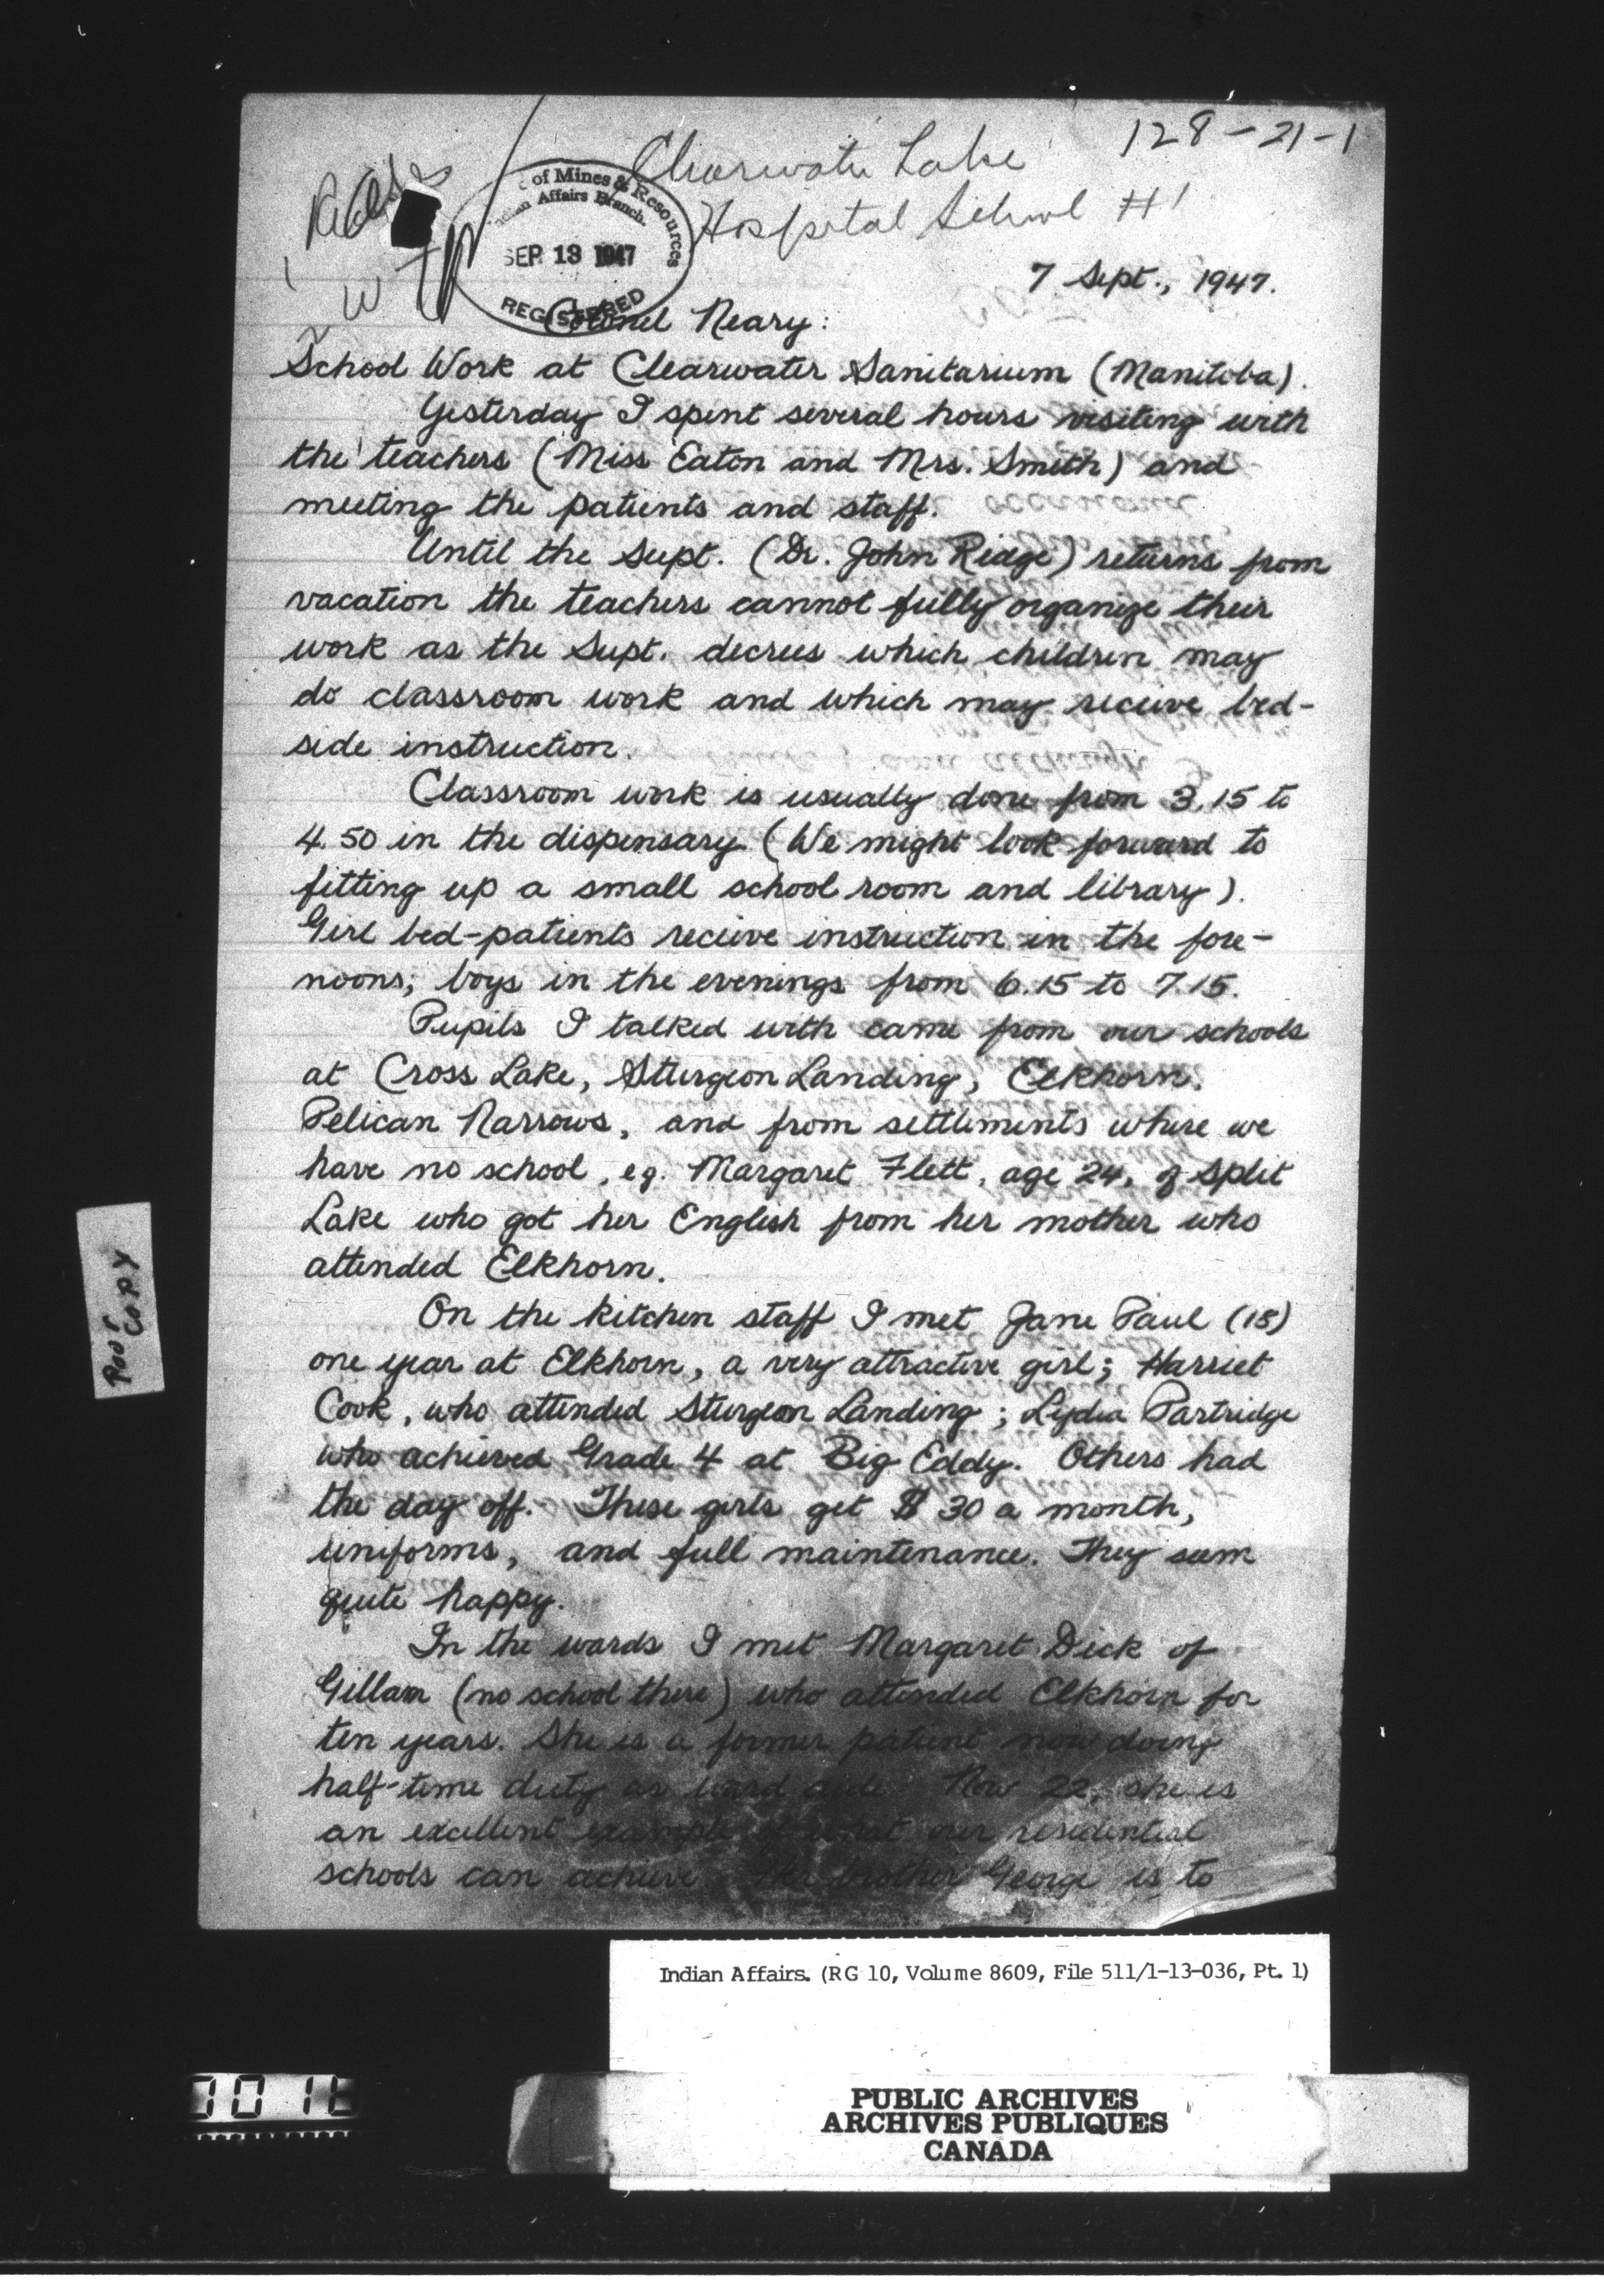 128-21-1
Clearwater Lake
Hospital School #1
of Mines & Resources
Indian Affairs Branch.
SEP 13 1947
REGISTERED
7 Sept., 1947.
Colonel Neary:
School Work at Clearwater Sanitarium (Manitoba).
Yesterday I spent several hours visiting with
the teachers (Miss Eaton and Mrs. Smith) and
meeting the patients and staff.
Until the Supt. (Dr. John Ridge) returns from
vacation the teachers cannot fully organize their
work as the Supt. decrees which children may
do classroom work and which may receive bed-
side instruction.
Classroom work is usually done from 3.15 to
4.50 in the dispensary (We might look forward to
fitting up a small school room and library).
Girl bed-patients receive instruction in the fore-
noons; boys in the evenings from 6.15 to 7.15.
Pupils I talked with came from our schools
at Cross Lake, Sturgeon Landing, Elkhorn,
Pelican Narrows, and from settlements where we
have no school, eg. Margaret Flett, age 24, of Split
Lake who got her English from her mother who
attended Elkhorn.
On the kitchen staff I met Jane Paul (18)
one year at Elkhorn, a very attractive girl; Harriet
Cook, who attended Sturgeon Landing; Lydia Partridge
who achieved Grade 4 at Big Eddy. Others had
the day off. These girls get $30 a month,
uniforms, and full maintenance. They seem
quite happy.
In the wards I met Margaret Dick of
Gillam (no school there) who attended Elkhorn for
ten years. She is a former patient now doing
half-time duty as ward aide. Now 22, she is
an excellent example of what our residential
schools can achieve. Her brother George is to
POOR COPY
Indian Affairs. (RG 10, Volume 8609, File 511/1-13-036, Pt. 1)
PUBLIC ARCHIVES
ARCHIVES PUBLIQUES
CANADA